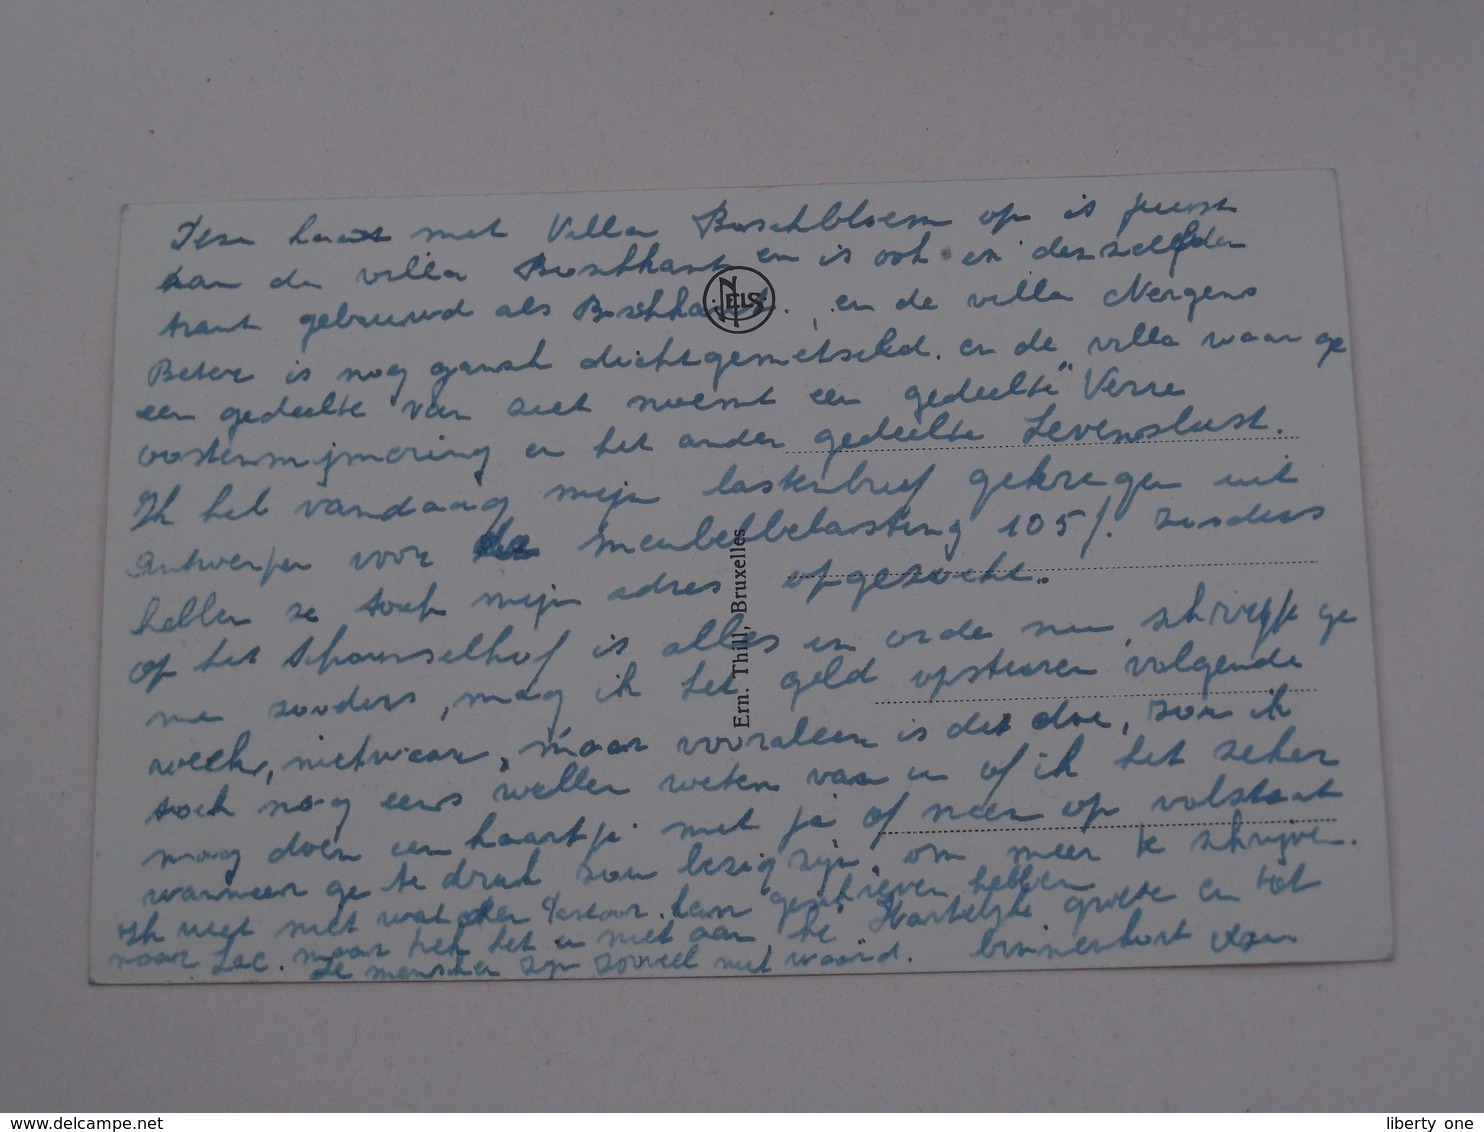 met Villa Boschbloem op is juist
aan de villa Boschkant en is ook in denzelfden
trant gebouwd als Boschkant. en de villa Nergens
Beter is nog gansch dichtgemetseld. en de villa waar ge
een gedeelte van ziet noemt een gedeelte "Verre
en het ander gedeelte Levenslust.
Ik heb vandaag mijn lastenbrief gekregen uit
Antwerpen voor Meubelbelasting 105/. zooders
hebben ze toch mijn adres opgezocht.
op het Schoonselhof is alles in orde nu, schrijft ge
me zooders, mag ik het geld opsturen volgende
week, nietwaar, maar vooraleer is dit doe, zou ik
toch nog eens willen weten van u of ik het zeker
mag doen een kaartje met ja of neen op volstaat
wanneer ge te druk zou bezig zijn, om meer te schrijven.
Ik weet niet wat den Pastoor kan geschreven hebben
naar Lac. maar trek het u niet aan,
ze menschen zijn zooveel niet waard.
Hartelijke groete en tot
binnenkort
NELS
Ern. Thill, Bruxelles
www.delcampe.net
liberty_one